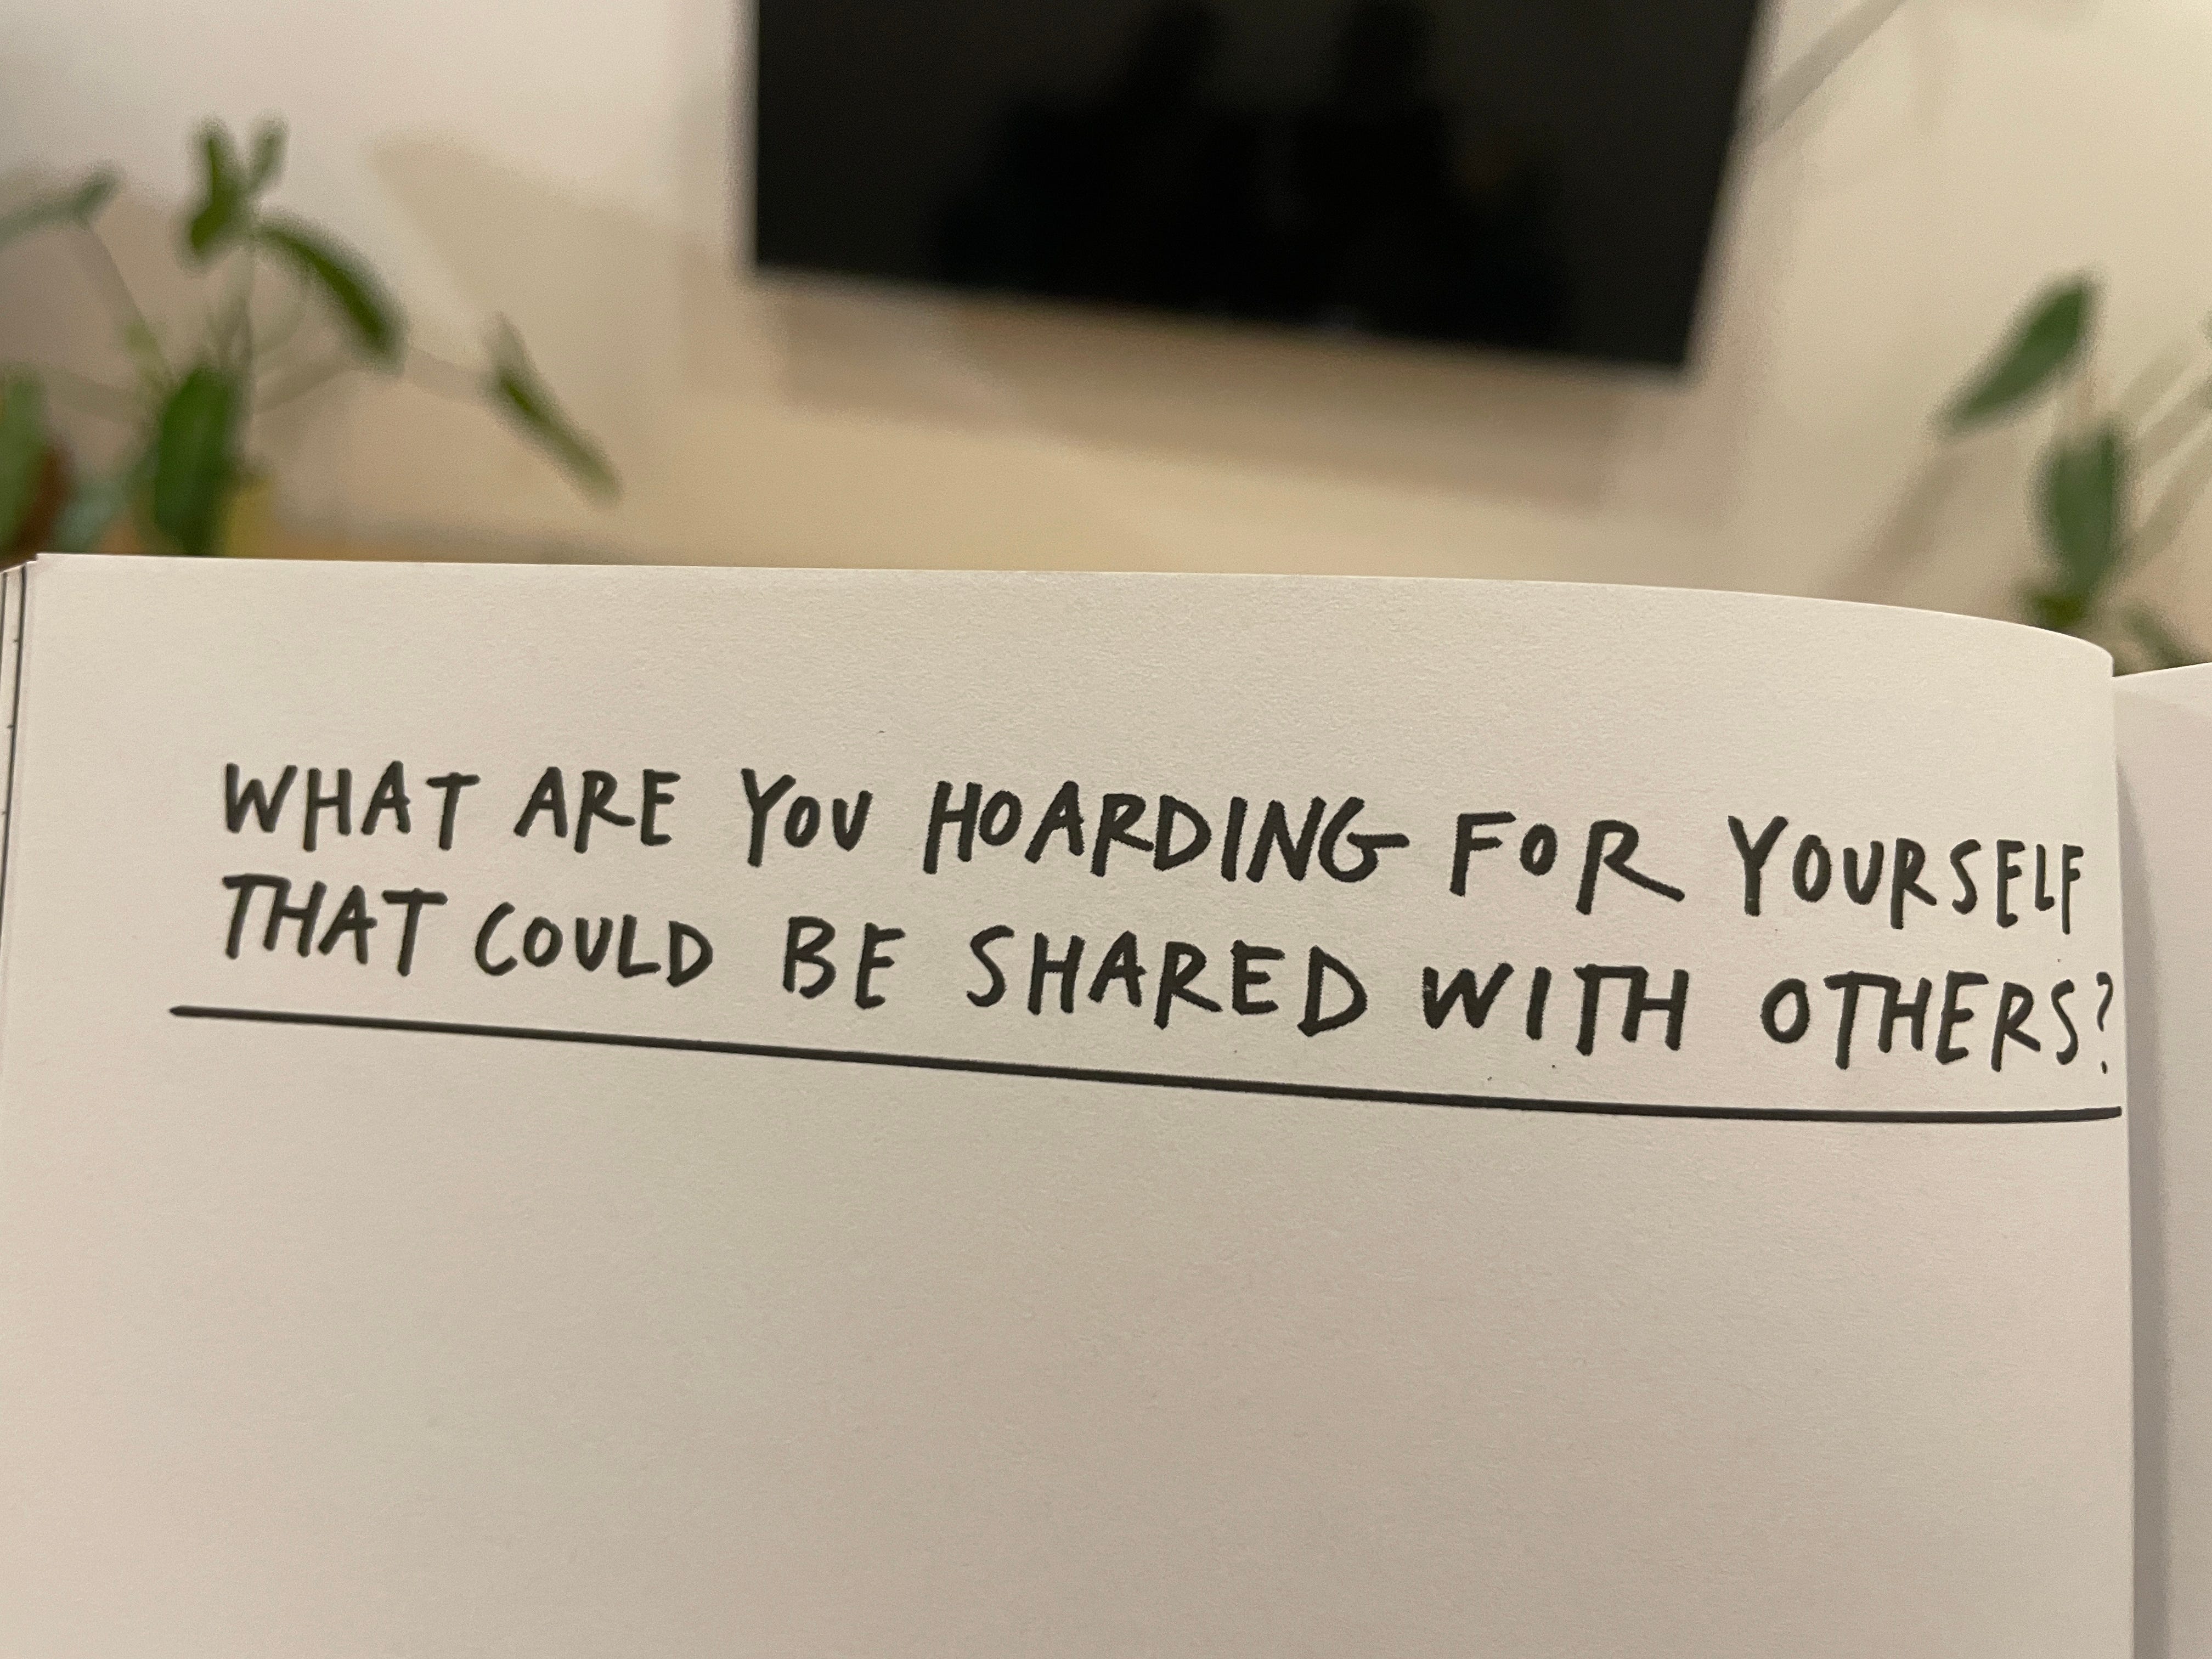 WHAT ARE YOU HOARDING FOR YOURSELF
THAT COULD BE SHARED WITH OTHERS?